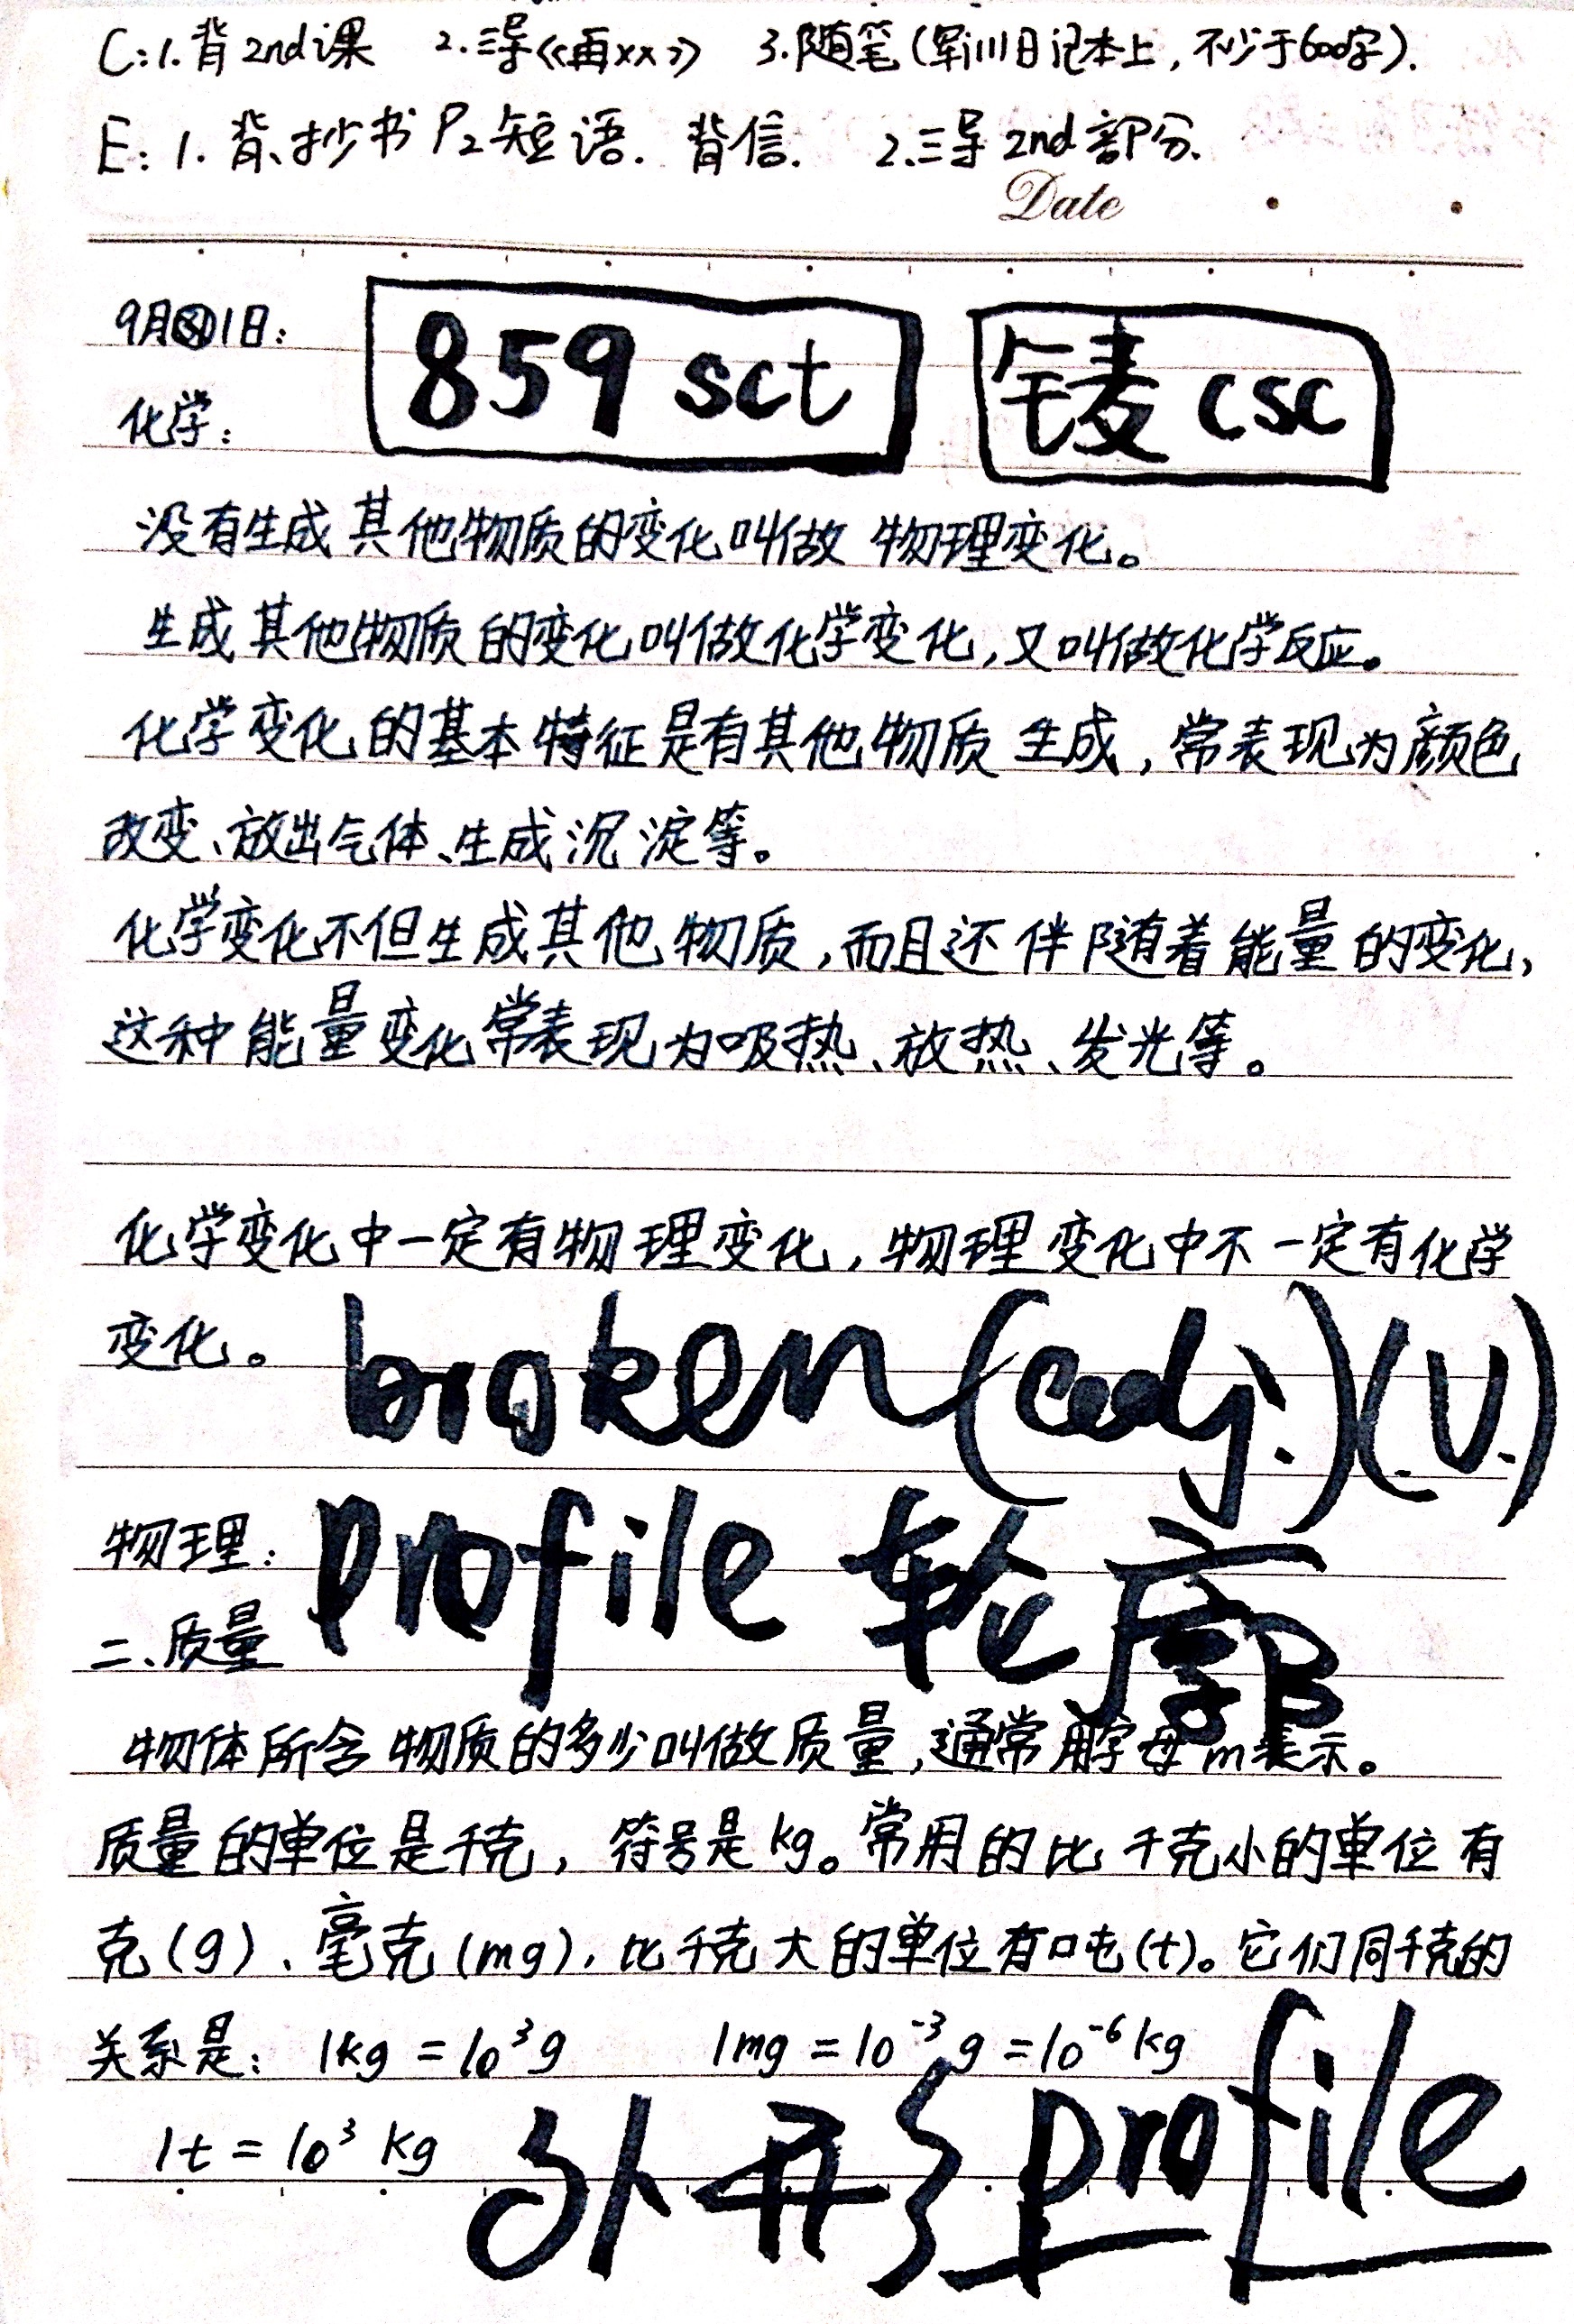 C:1.背2nd课 2.三导《再xx》 3.随笔(军训日记本上,不少于600字).
E:1.背、抄书P2短语.背信. 2.三导2nd部分.
Date
9月1日:
859 sct
csc
化学:
没有生成其他物质的变化叫做物理变化。
生成其他物质的变化叫做化学变化,又叫做化学反应。
化学变化的基本特征是有其他物质生成,常表现为颜色
改变、放出气体、生成沉淀等。
化学变化不但生成其他物质,而且还伴随着能量的变化,
这种能量变化常表现为吸热、放热、发光等。
化学变化中一定有物理变化,物理变化中不一定有化学
变化。
broken(adj.)(v.)
物理:
profile 轮廓
二、质量
物体所含物质的多少叫做质量,通常用字母m表示。
质量的单位是千克,符号是kg。常用的比千克小的单位有
克(g)、毫克(mg),比千克大的单位有吨(t)。它们同千克的
关系是: 1kg=10³g 1mg=10⁻³g=10⁻⁶kg
1t=10³kg
外形 profile